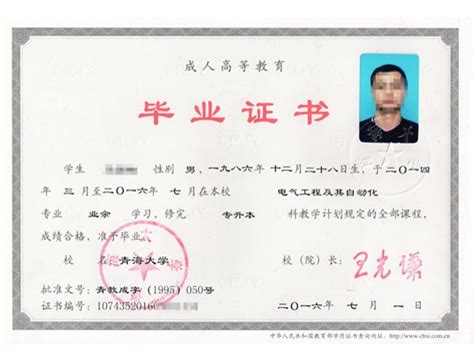 成人高等教育
毕业证书
学生 性别 男，一九八六年 十二月二十八日生，于二〇一四
年 三月至二〇一六年 七月在本校 电气工程及其自动化
专业 业余 学习，修完 专升本 科教学计划规定的全部课程，
成绩合格，准予毕业。
校 名：青海大学 校（院）长：王光谦
批准文号：青教成字（1995）050号
证书编号：1074352016 二〇一六年 七 月 一 日
中华人民共和国教育部学历证书查询网址：http://www.chsi.com.cn